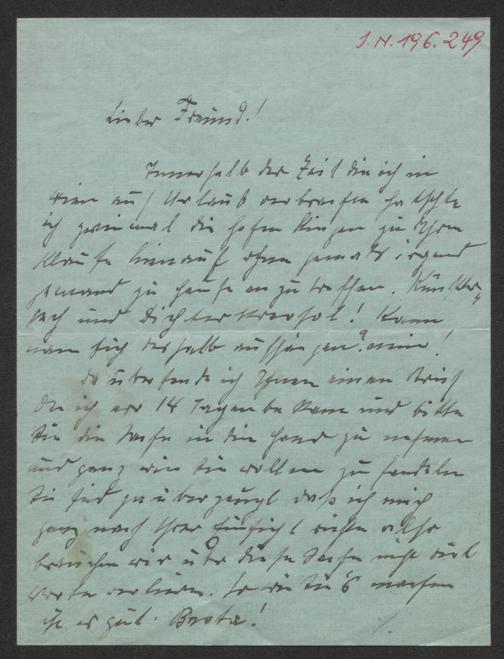 J.N. 196.249
Lieber Freund!
Innerhalb der Zeit die ich in
Wien auf Urlaub verbrachte
ich zweimal die hohen Stiegen zu Ihrer
Klause hinauf ohne jemals irgend
jemand zu Hause anzutreffen. Künstler-
pech und Dichterschicksal! Kann
man sich deshalb aufhängen? nein!
Da übersende ich Ihnen einen Brief
den ich vor 14 Tagen bekam und bitte
Sie die Sache in die Hand zu nehmen
und ganz wie Sie wollen zu handeln
Sie sind ja überzeugt daß ich mich
ganz nach Ihrer Einsicht richte also
brauchen wir über diese Sache nicht viel
Worte verlieren. So wie Sie's machen
ist es gut. Basta!